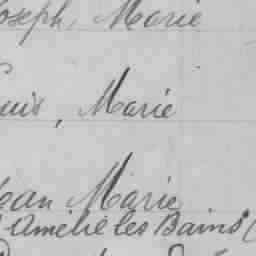 Joseph, Marie
Louis, Marie
Jean Marie
Amélie les Bains (